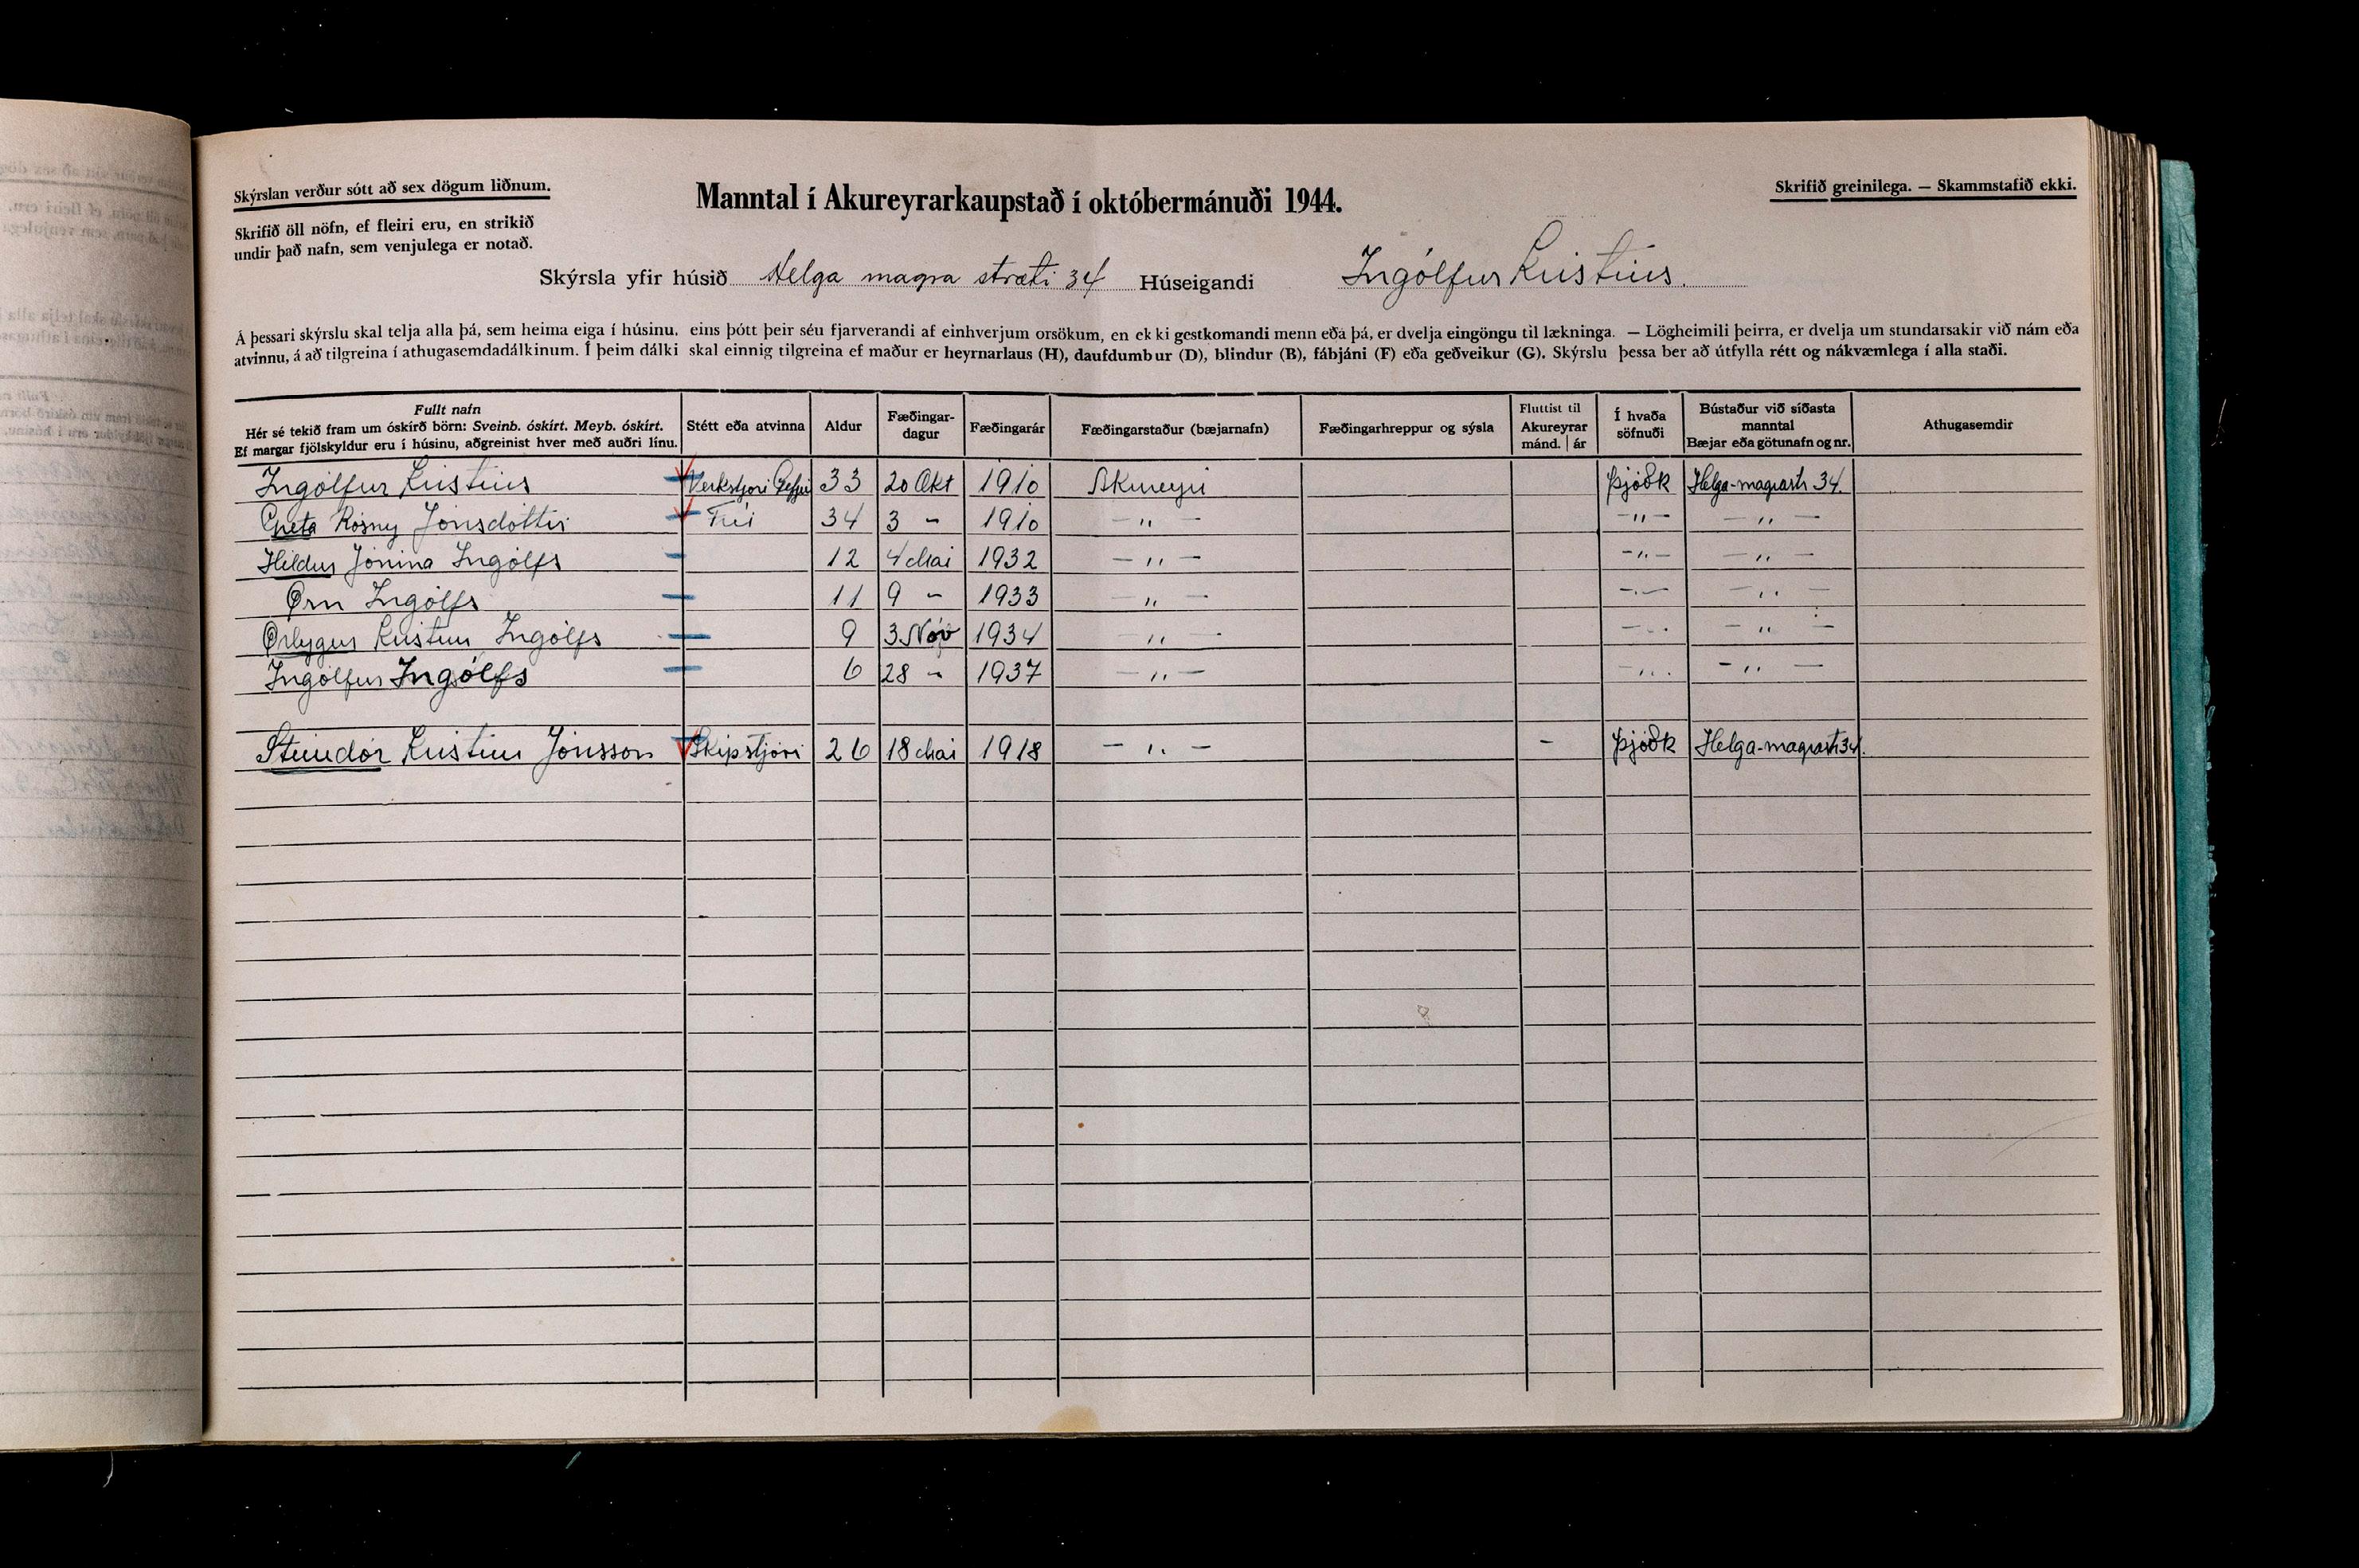 Skýrslan verður sótt að sex dögum liðnum.
Skrifið öll nöfn, ef fleiri eru, en strikið
undir það nafn, sem venjulega er notað.
Manntal í Akureyrarkaupstað í októbermánuði 1944.
Skrifið greinilega. — Skammstafið ekki.
Skýrsla yfir húsið Helga magra stræti 34 Húseigandi Ingólfur Kristins.
Á þessari skýrslu skal telja alla þá, sem heima eiga í húsinu, eins þótt þeir séu fjarverandi af einhverjum orsökum, en ekki gestkomandi menn eða þá, er dvelja eingöngu til lækninga. — Lögheimili þeirra, er dvelja um stundarsakir við nám eða
atvinnu, á að tilgreina í athugasemdadálkinum. Í þeim dálki skal einnig tilgreina ef maður er heyrnarlaus (H), daufdumbur (D), blindur (B), fábjáni (F) eða geðveikur (G). Skýrslu þessa ber að útfylla rétt og nákvæmlega í alla staði.
Fullt nafn
Hér sé tekið fram um óskírð börn: Sveinb. óskírt. Meyb. óskírt.
Ef margar fjölskyldur eru í húsinu, aðgreinist hver með auðri línu.
Stétt eða atvinna
Aldur
Fæðingar-
dagur
Fæðingarár
Fæðingarstaður (bæjarnafn)
Fæðingarhreppur og sýsla
Fluttist til
Akureyrar
mánd. | ár
Í hvaða
söfnuði
Bústaður við síðasta
manntal
Bæjar eða götunafn og nr.
Athugasemdir
Ingólfur Kristins Verkstjori Gefjun 33 20 Okt 1910 Akureyri Þjóðk Helga-magrastr 34.
Greta Rósný Jónsdóttir Frú 34 3 - 1910 - " - - " - - " -
Hildur Jónína Ingólfs 12 4 Mai 1932 - " - - " - - " -
Örn Ingólfs 11 9 - 1933 - " - - " - - " -
Örlygur Kristinn Ingólfs 9 3 Nóv 1934 " - - " - - " -
Ingólfur Ingólfs 6 28 - 1937 - " - - " - - " -
Steindór Kristinn Jónsson Skipstjóri 26 18 Mai 1918 - " - - Þjóðk Helga-magrastr 34.